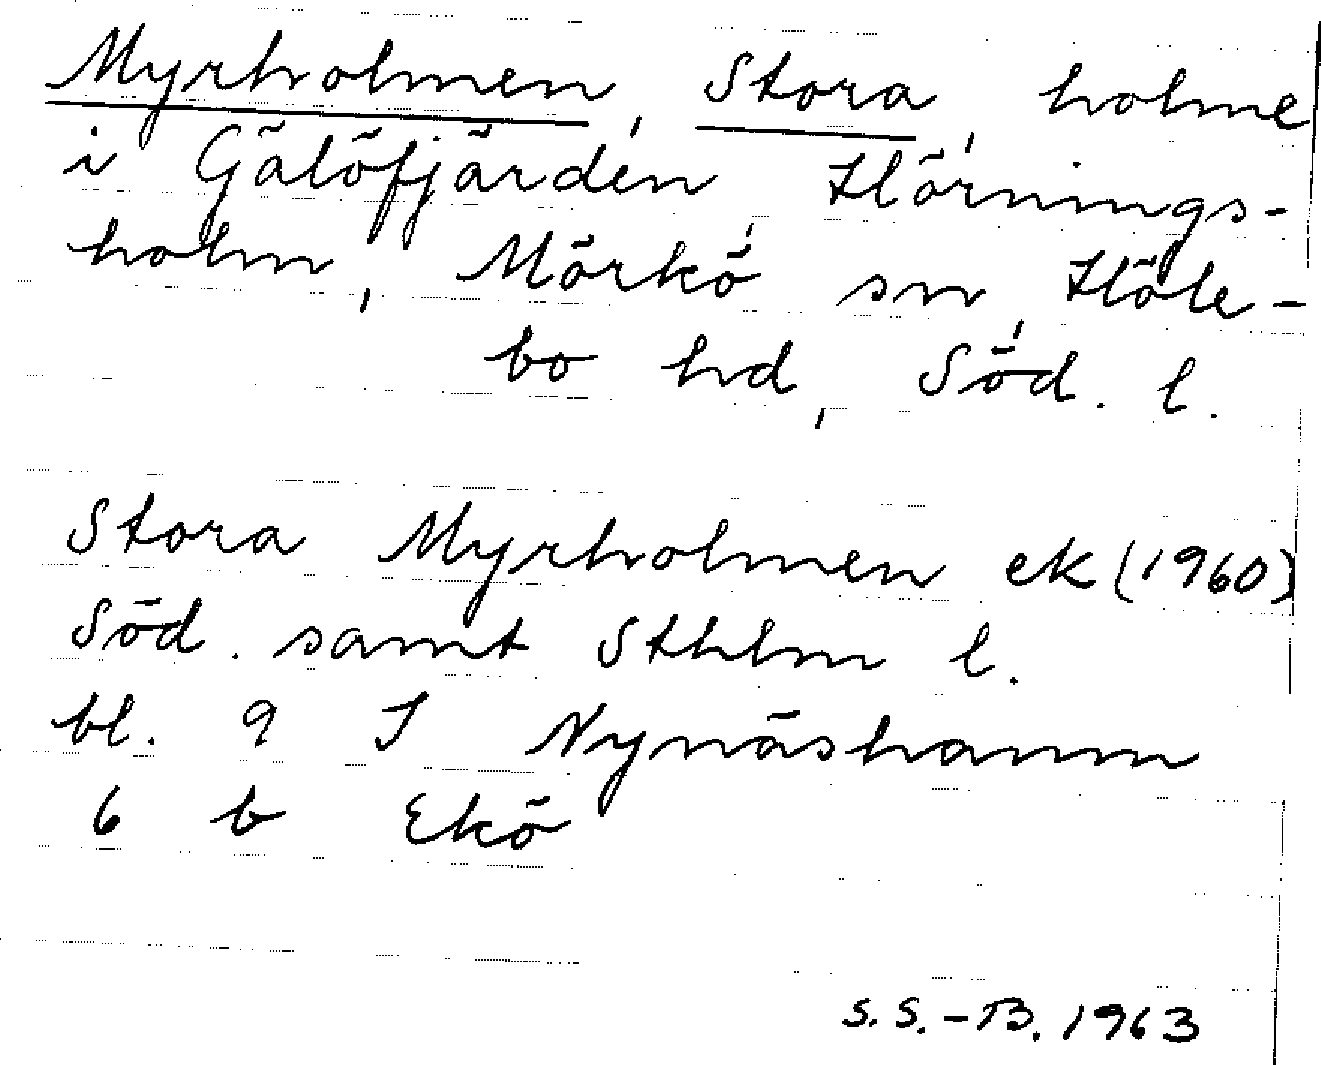 Myrholmen, Stora, holme
i Gälöfjärden, Hörnings-
holm, Mörkö sn, Höle-
bo hd, Söd. l.
Stora Myrholmen ek (1960)
Söd. samt Sthlm l.
bl. 9 I Nynäshamn
6 b Ekö
S.S.-B. 1963